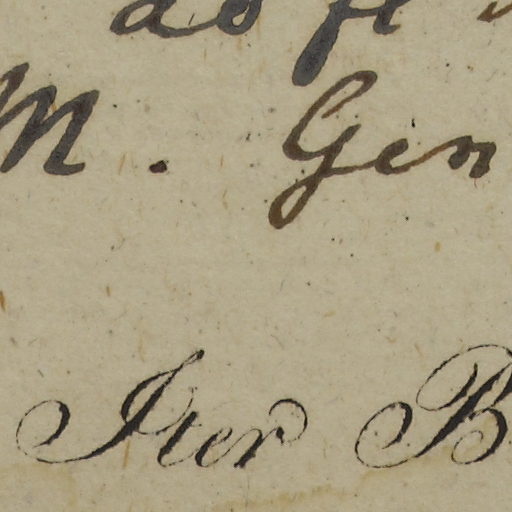 M. Gen
Iter B